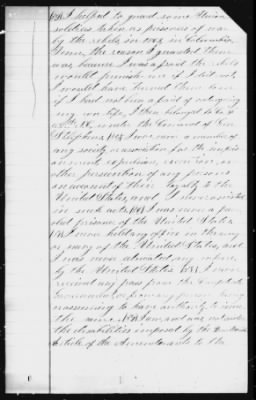 I helped to guard some Union
soldiers taken as prisoners of war
by the rebels in 1863 in Columbia
Tenn. the reason I guarded them
was because I was afraid the rebels
would punish me if I did not,
I would have turned them loose
if I had not been afraid of outraging
my own life, I then belonged to
under the Command of Gen
Stephens, I was never a member of
any society or association for the impris-
onment, expulsion, execution, or
other persecution of any persons
on account of their loyalty to the
United States, and I never assisted
in such acts. I was never a paroled
prisoner of the United States.
I never held any office in the army
or navy of the United States, and
I was never educated any where
by the United States. I never
received any pass from the Confederate
Government or from any person having or
assuming to have authority to issue
the same. I am not and was not under
the disabilities imposed by the Fourteenth
Article of the Amendments to the